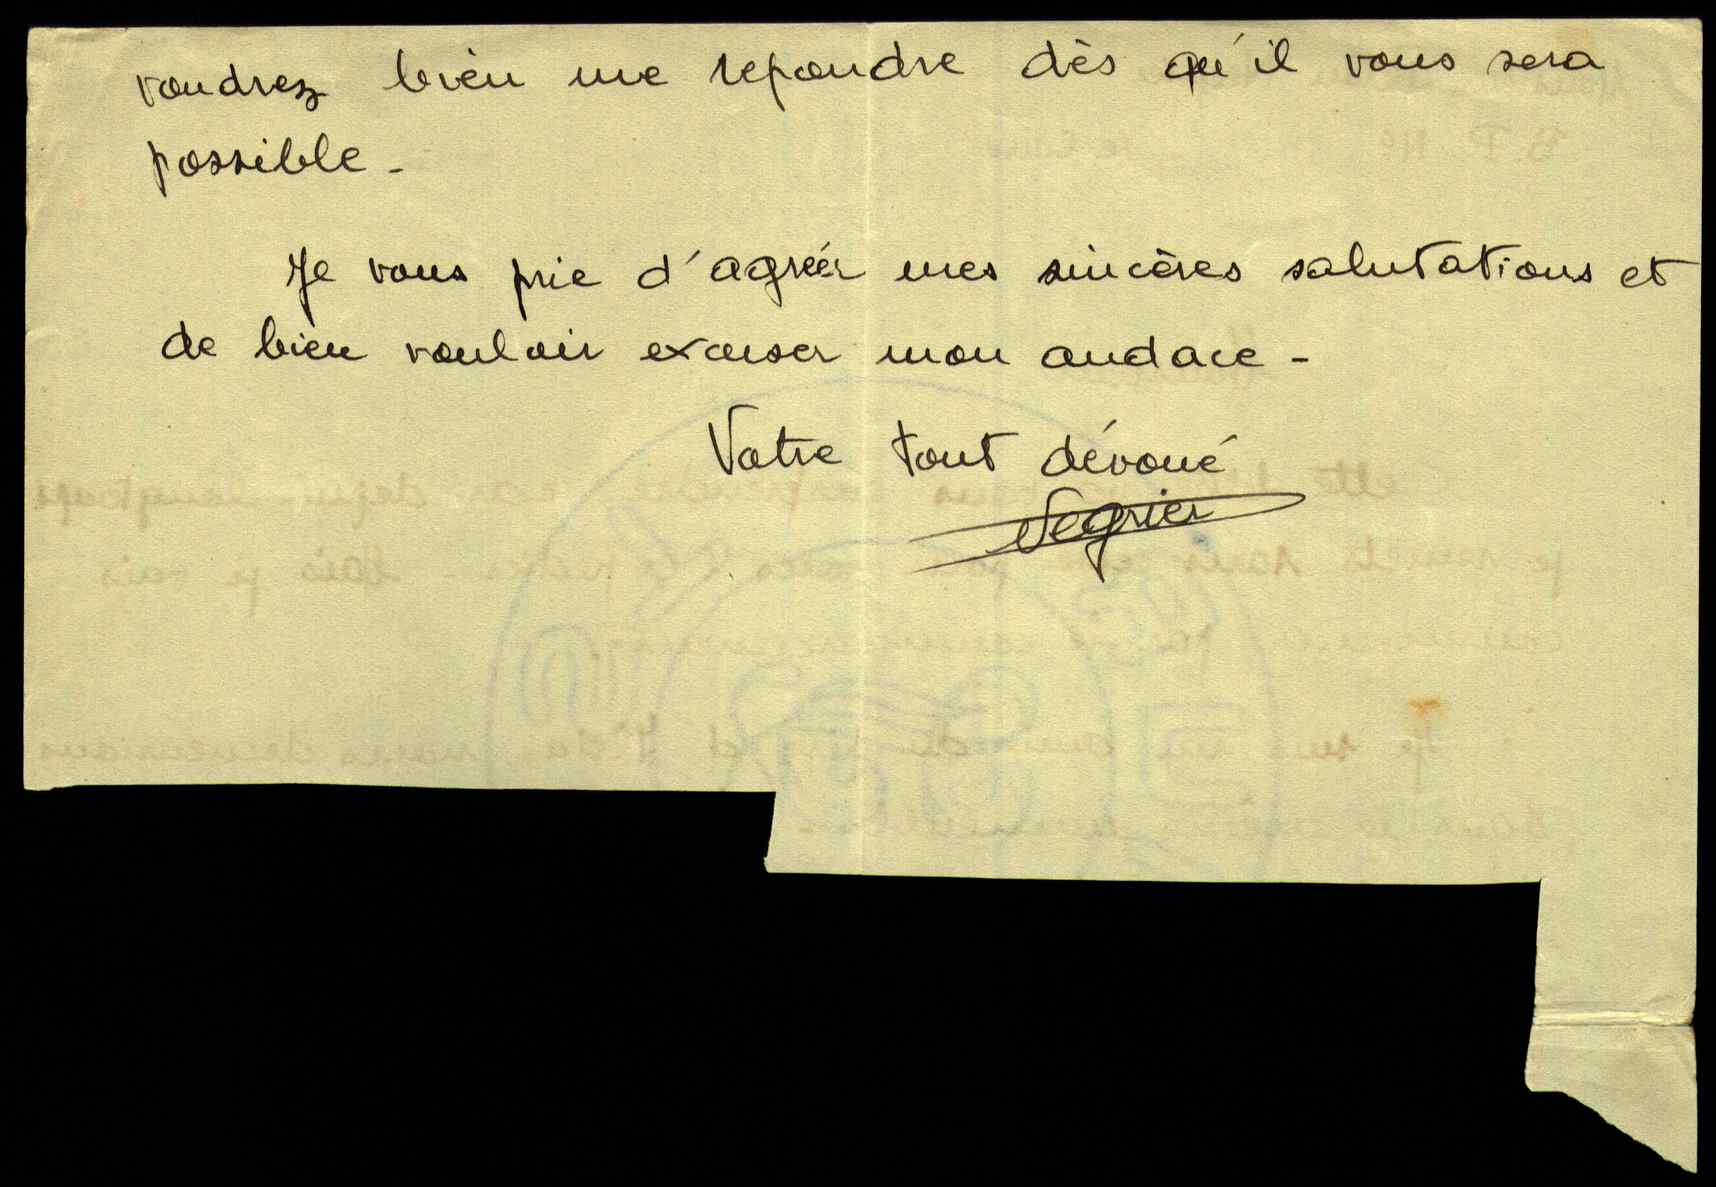 voudrez bien me repondre dès qu'il vous sera
possible -
Je vous prie d'agréer mes sincères salutations et
de bien vouloir excuser mon audace -
Votre tout dévoué